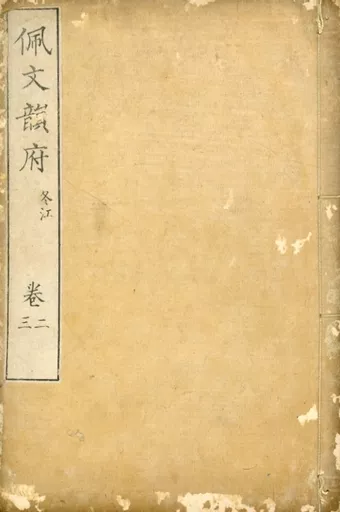 佩文韻府
冬江
卷
二三